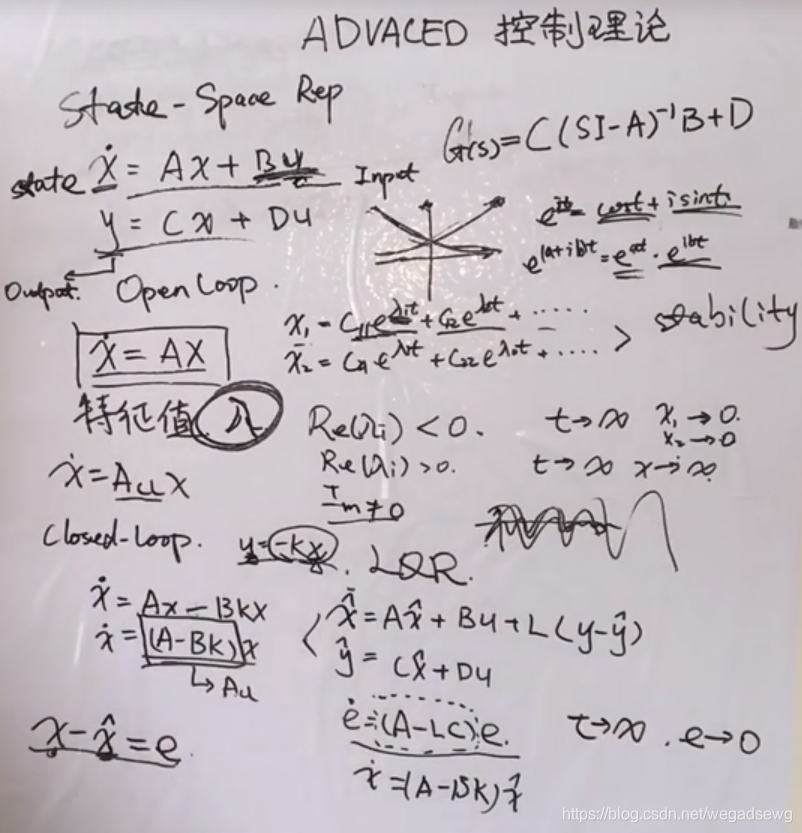 ADVACED 控制理论
State-Space Rep
G(s)=C(SI-A)⁻¹B+D
state ẋ = Ax + Bu Input
y = Cx + Du
e^{it} = cost + i sint
e^{(a+ib)t} = e^{at} · e^{ibt}
Output. Open Loop.
ẋ = Ax
x₁ = C₁₁e^{λ₁t} + C₁₂e^{λ₂t} + ......
x₂ = C₂₁e^{λ₁t} + C₂₂e^{λ₂t} + ....
> stability
特征值 λ
Re(λi) < 0. t→∞ x₁→0.
x₂→0
Re(λi) > 0. t→∞ x→∞
Im ≠ 0
ẋ = Acl x
Closed-Loop. u = -Kx. LQR.
ẋ = Ax - BKx
ẋ = (A-BK)x
↳ Acl
x̂̇ = Ax̂ + Bu + L(y-ŷ)
ŷ = Cx̂ + Du
x - x̂ = e
ė = (A-LC)e. t→∞. e→0
ẋ = (A-BK)x̂
https://blog.csdn.net/wegadsewg